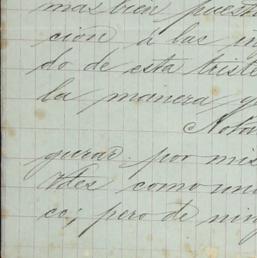 mas bien puest
cion á las in
do de esta triste
la manera q
Noto
gurar por mis
Vdes como un
co; pero de nin